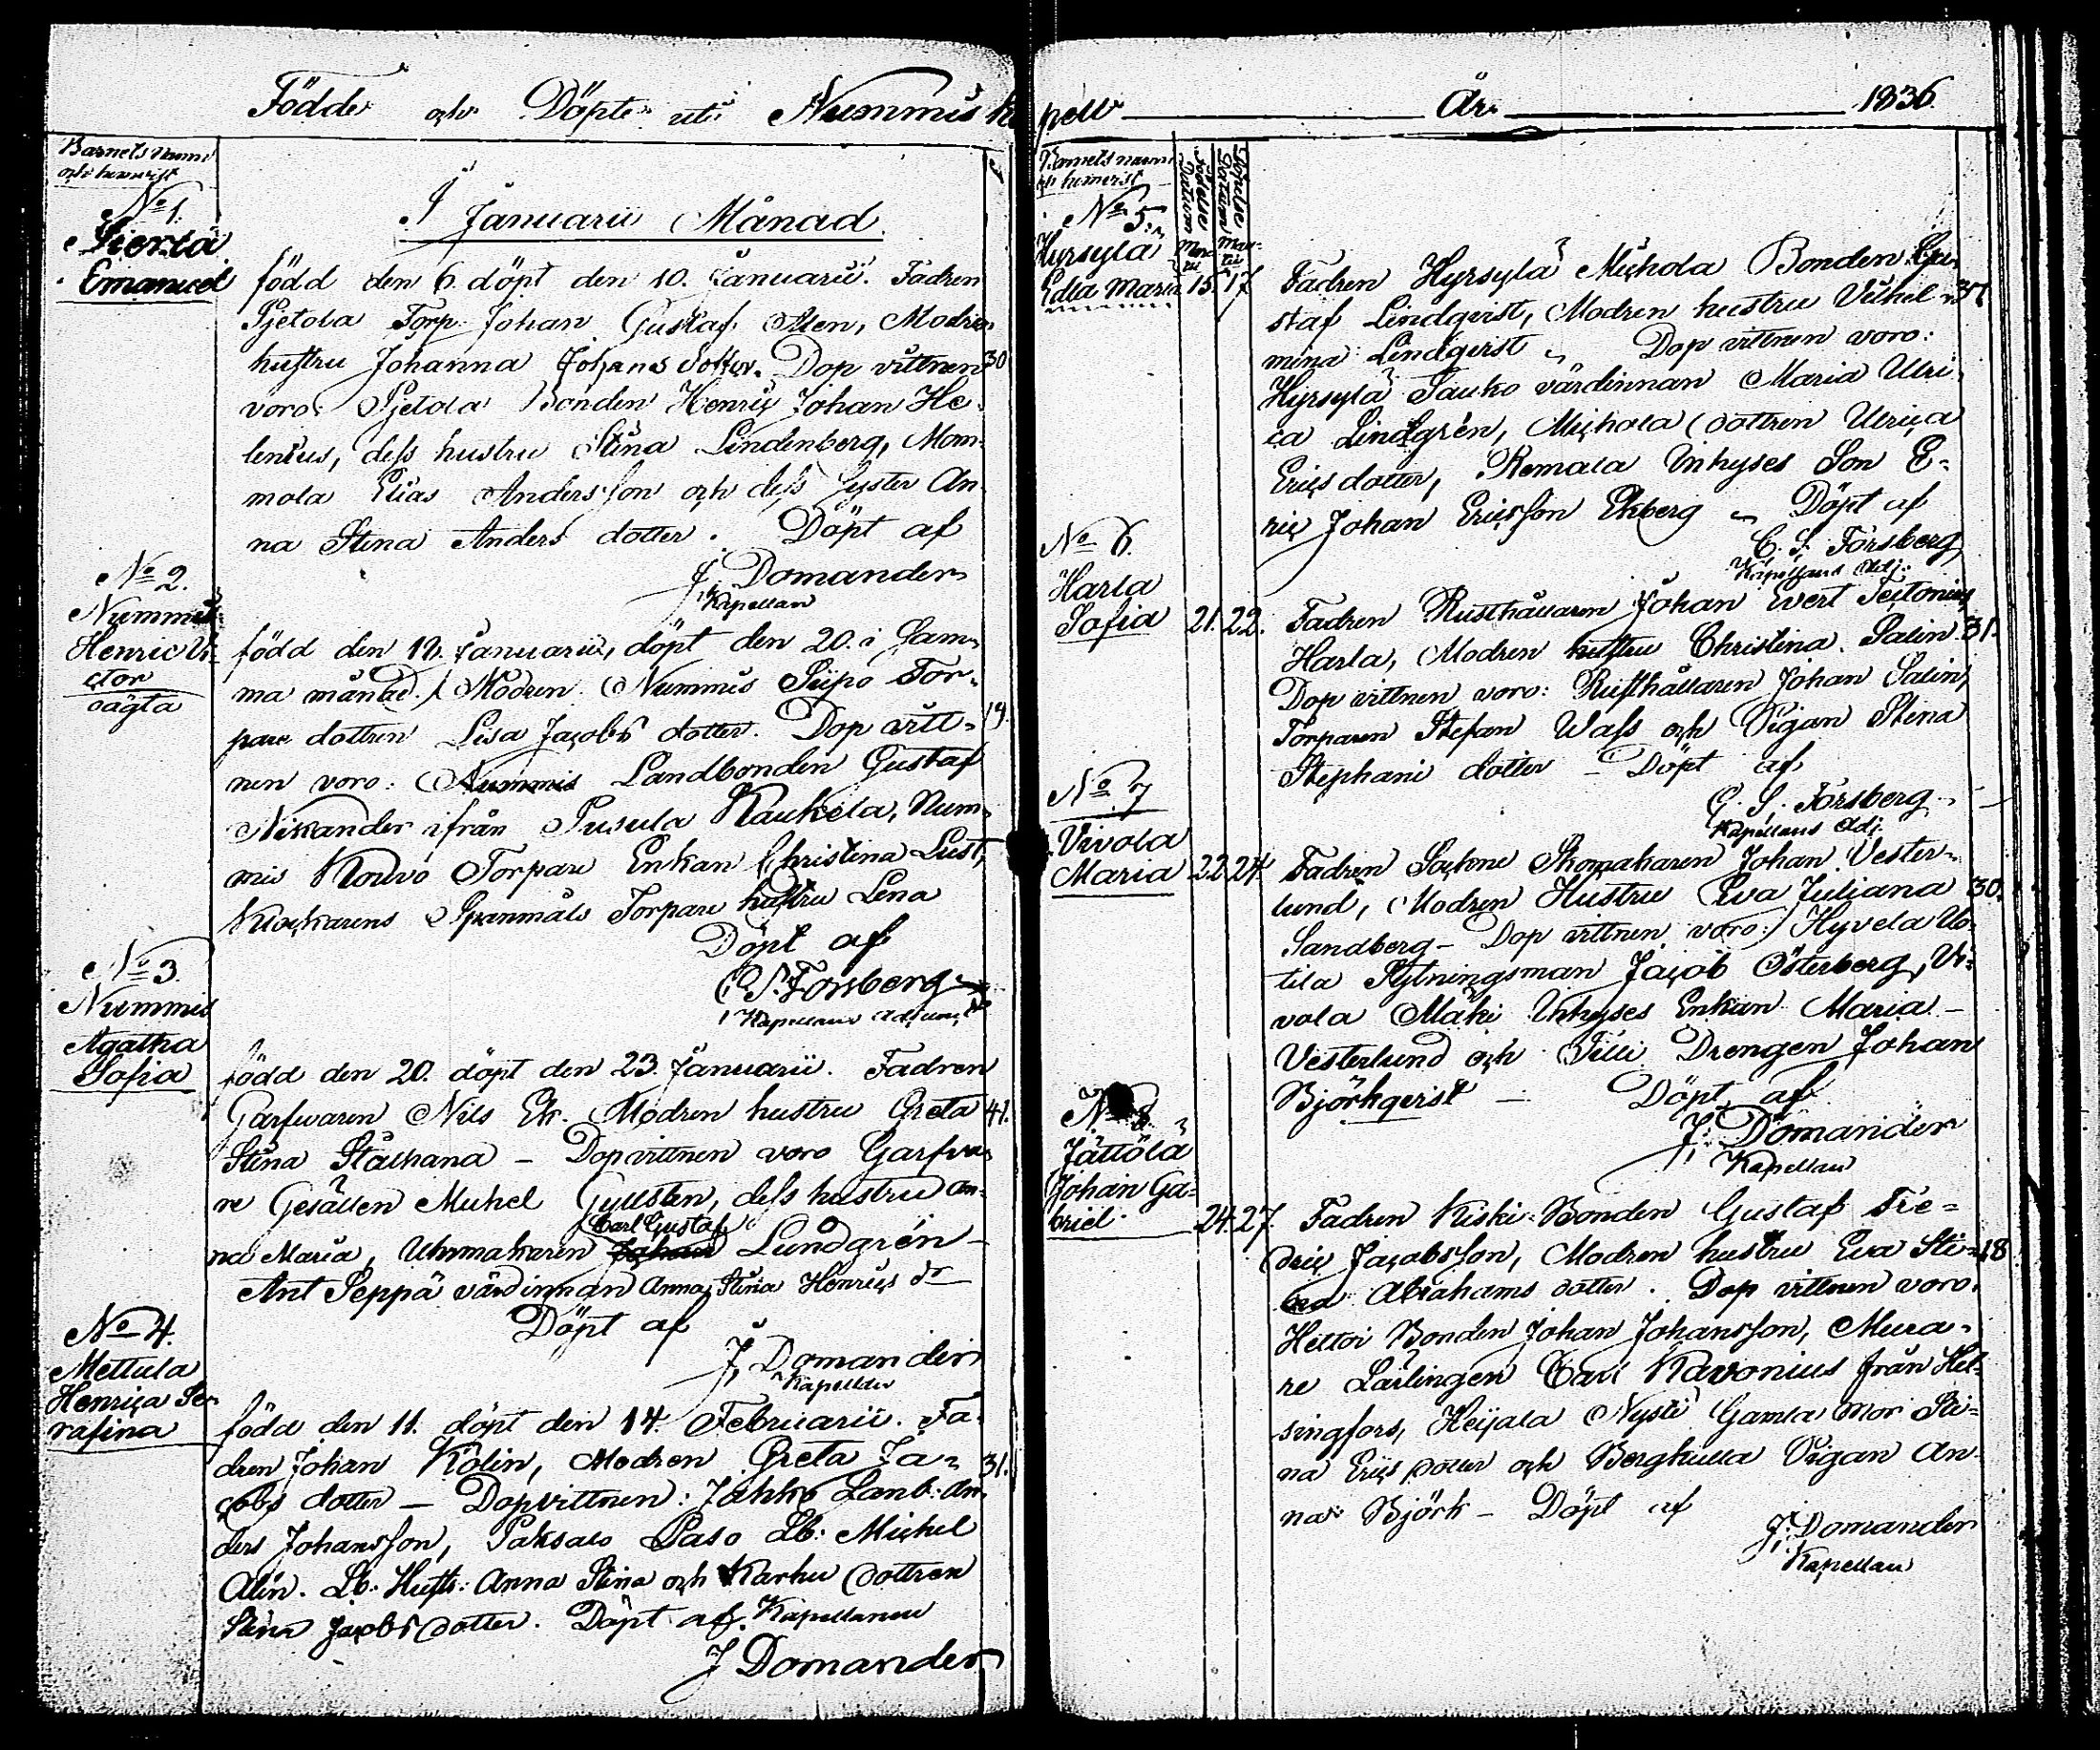 Födde och Döpte uti Nummis Kapell År 1836.
Barnets Namn
och hemvist
I Januarii Månad.
No 1.
Sierla
Emanuel
född den 6. döpt den 10. Januarii. Fadren
Pjetola Torp. Johan Gustaf Alen, Modren
hustru Johanna Johans dotter. Dop vittnen 30
voro: Pjetola Bonden Henric Johan He-
lenius, dess hustru Stina Lindenberg, Mom-
mola Elias Andersson och dess Syster An-
na Stina Anders dotter. Döpt af
J. Domander
Kapellan
No 2.
Nummis
Henric Vi-
ctor
oägta
född den 18. Januarii, döpt den 20. i sam-
ma månad. Modren Nummis Siipo Tor-
pare dottren Lisa Jacobs dotter. Dop vitt- 19.
nen voro: Nummis Landbonden Gustaf
Nikander ifrån Pusula Kaukela, Num-
mis Kouvo Torpare Enkan Christina Lust,
Klockarens Spanmåls Torpare hustru Lena
Döpt af
C. S. Forsberg
Kapellans Adjunct
No 3.
Nummis
Agatha
Sofia
född den 20. döpt den 23. Januarii. Fadren
Garfvaren Nils Ek. Modren hustru Greta 41.
Stina Stålhana - Dopvittnen voro Garfva-
re Gesällen Mickel Gyllsten, dess hustru An-
na Maria, Uhrmakaren Carl Gustaf Lundgrén -
Ant Seppä värdinnan Anna Stina Henrics dr
Döpt af
J. Domander
Kapellan
No 4.
Mettula
Henrica Se-
rafina
född den 11. döpt den 14. Februarii. Fa-
dren Johan Kölin, Modren Greta Ja- 31.
cobs dotter - Dopvittnen: Jakko Lanb: An-
ders Johansson, Saksalo Paso Lb: Michel
Alin. Lb: Hust: Anna Stina och Karhu dottren
Stina Jacobs dotter. Döpt af Kapellanen
J Domander
Barnets namn
och hemvist
Födelse Datum Martii
Döpelse Datum Martii
No 5.
Hyrsylä
Edla Maria 15. 17
Fadren Hyrsylä Michola Bonden Gu-
staf Lindqvist, Modren hustru Vilhel- 37
mina Lindqvist - Dop vittnen voro:
Hyrsylä Sauko värdinnan Maria Ulri-
ca Lindgrén, Michola dottren Ulrica
Erics dotter, Remala Inhyses Son E-
ric Johan Ericsson Ekberg - Döpt af
C. S. Forsberg
Kapellans Adj:
No 6.
Harla
Sofia 21. 22.
Fadren Rusthållaren Johan Evert
Harla, Modren hustru Christina Salin 31.
Dop vittnen voro: Rusthållaren Johan Salin,
Torparen Stefan Wass och Pigan Stina
Stephani dotter - Döpt af
C. S. Forsberg
Kapellans Adj.
No 7
Vivola
Maria 22 24
Fadren Sockne Skomakaren Johan Vester-
lund, Modren Hustru Eva Juliana 30.
Sandberg - Dop vittnen voro: Hyvela Uo-
tila Flytningsman Jacob Österberg, Vi-
vola Mäki Inhyses Enkan Maria -
Vesterlund och Tilli Drengen Johan
Björkqvist - Döpt af
J. Domander
Kapellan
No 8.
Jättölä
Johan Ga-
briel 24. 27.
Fadren Kiski Bonden Gustaf Fre-
dric Jacobsson, Modren hustru Eva Sti- 18
na Abrahams dotter. Dop vittnen voro.
Hettoi Bonden Johan Johansson, Mura-
re Lärlingen Carl Kavonius från Hel-
singfors, Heijala Nysti Gamla mor Sti-
na Erics dotter och Bergkulla Pigan An-
na Björk - Döpt af
J. Domander
Kapellan